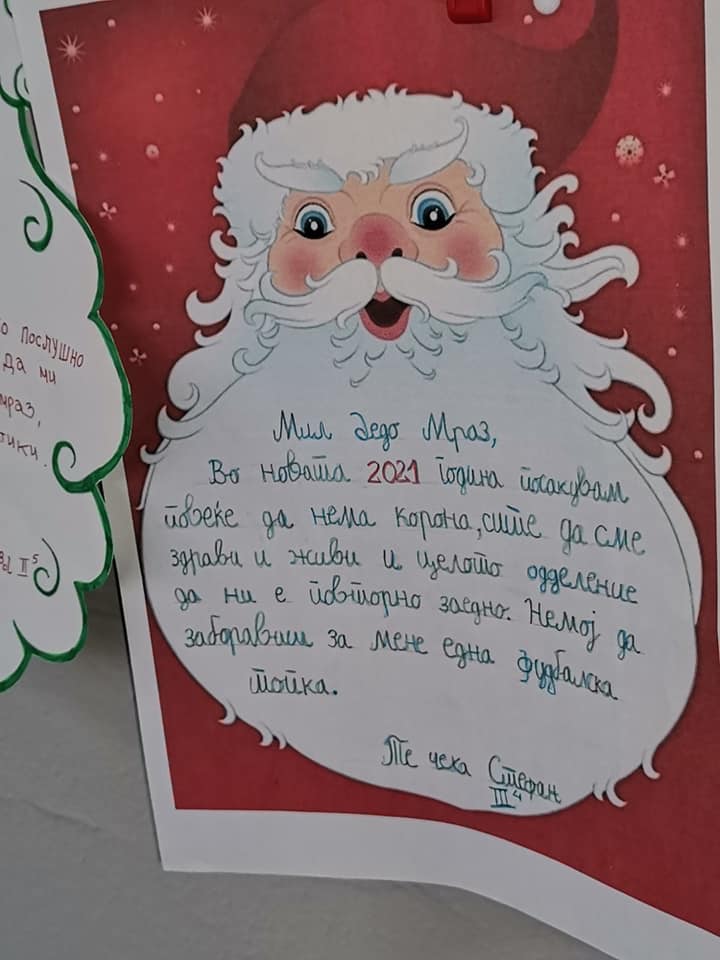 о послушно
да ми
мраз,
II⁵
Мил Дедо Мраз,
Во новата 2021 година посакувам
повеќе да нема корона, сите да сме
здрави и живи и целото одделение
да ни е повторно заедно. Немој да
заборавиш за мене една фудбалска
топка.
Те чека Стефан
III⁴